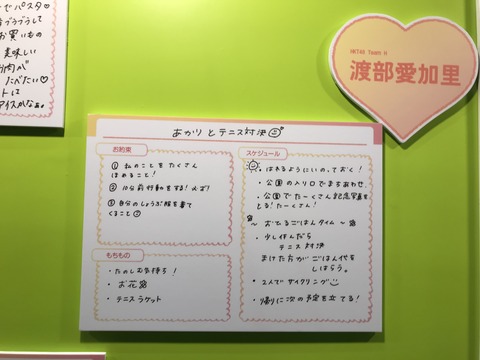 でパスタ♡
ブラブラして
お買いもの
美味しい
肉が
たべたい♡
トは
アイスかなぁ。
HKT48 Team H
渡部愛加里
あかりとテニス対決
お約束
① 私のことをたくさん
ほめること!
② 10分前行動をする!必ず!
③ 自分のしょうぶ服を着て
くること
もちもの
・たのしむ気持ち!
・お花
・テニスラケット
スケジュール
・はれるようにいのっておく!
・公園の入り口でまちあわせ。
・公園でたーくさん記念写真を
とる!たーくさん!
〜おひるごはんタイム〜
・少し休んだら
テニス対決
まけた方がごはん代を
しはらう。
・2人でサイクリング
・帰りに次の予定を立てる!